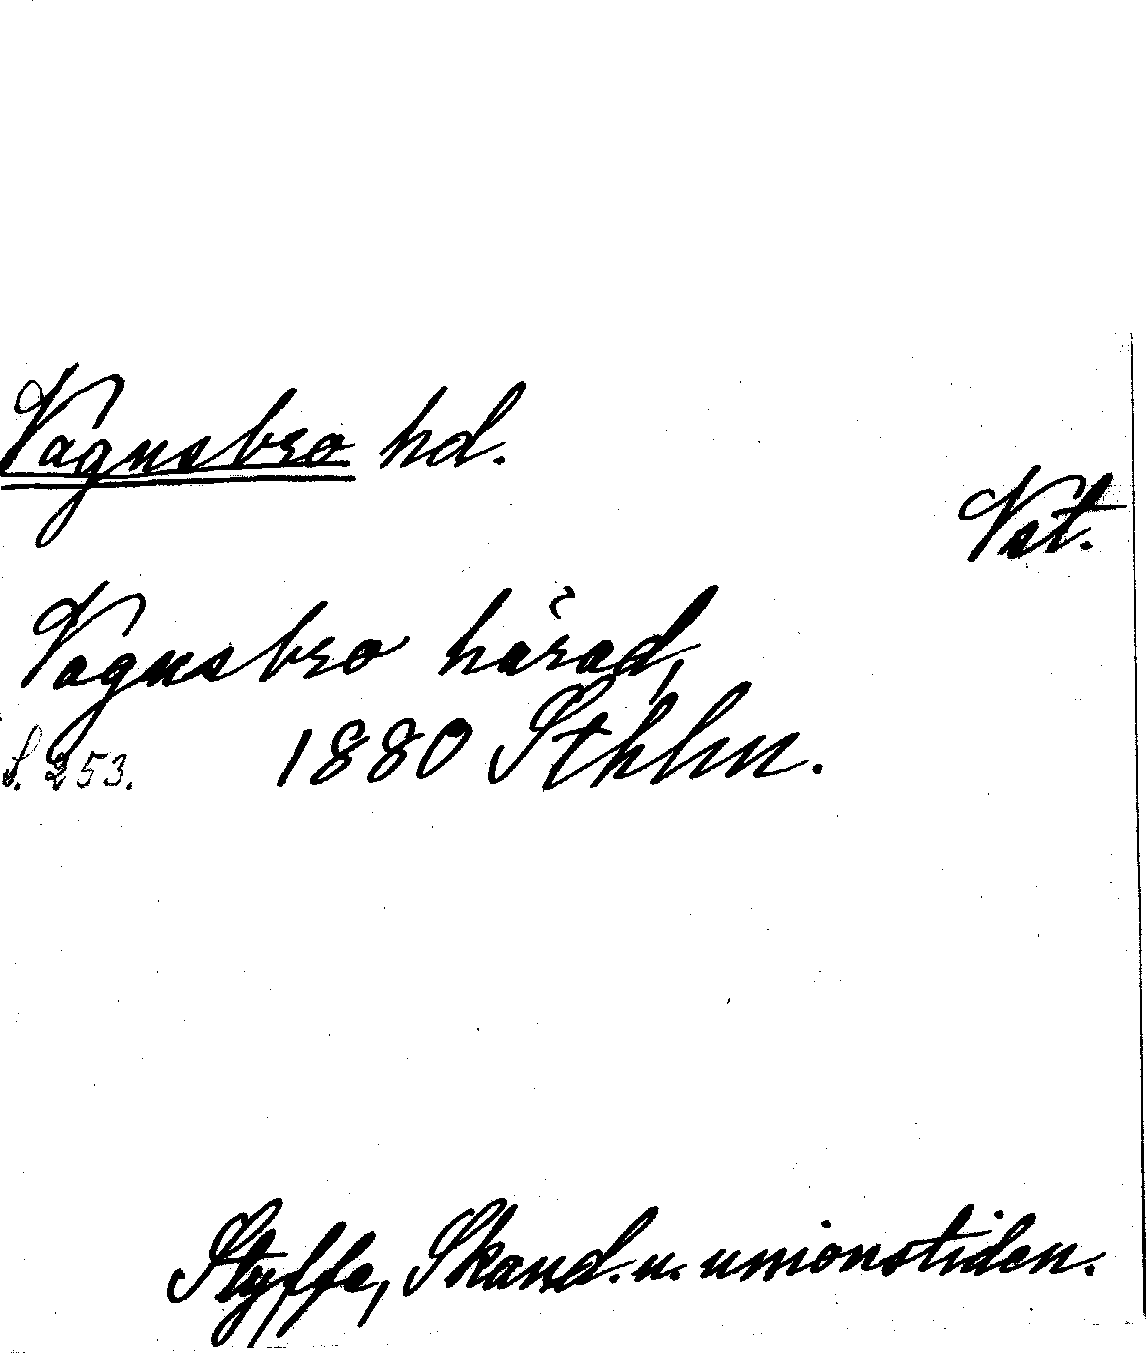 Vagnsbro hd.
Vst.
Vagnsbro härad,
S. 253. 1880 Sthlm.
Styffe, Skand. u. unionstiden.